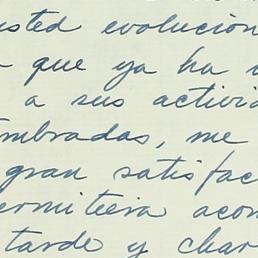 usted evolucion
que ya ha
a sus activid
mbradas, me
gran satisfac
ermitiera acom
tarde y char